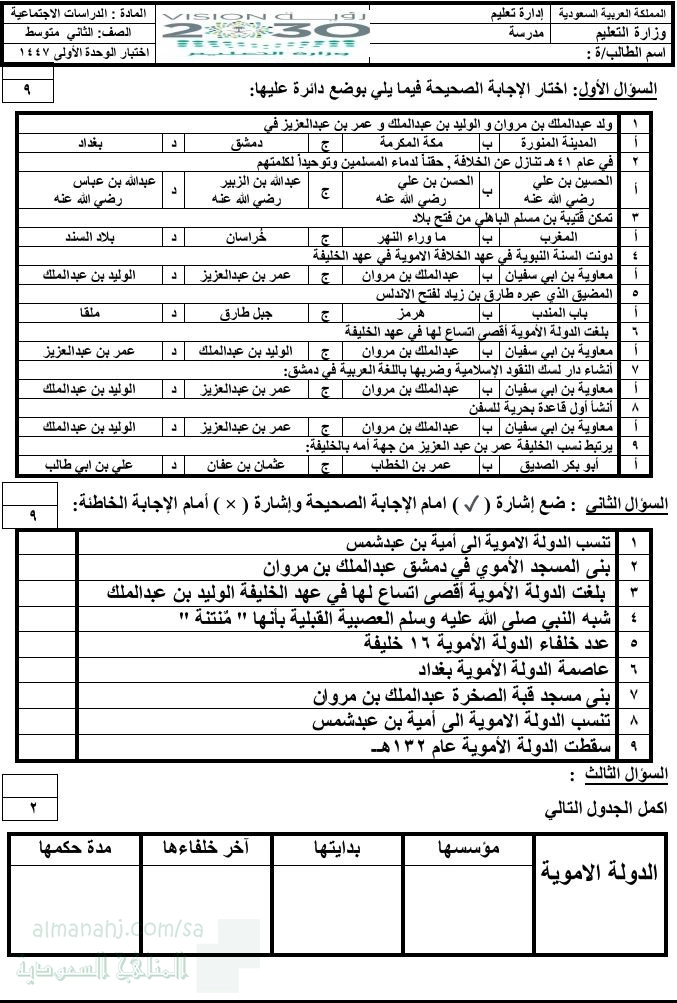 المملكة العربية السعودية
إدارة تعليم
رؤيـــة VISION
المادة : الدراسات الاجتماعية
وزارة التعليم
مدرسة
2030
الصف: الثاني متوسط
اسم الطالب/ة :
وزارة التعليم
اختبار الوحدة الأولى ١٤٤٧
السؤال الأول: اختار الإجابة الصحيحة فيما يلي بوضع دائرة عليها:
٩
١ ولد عبدالملك بن مروان و الوليد بن عبدالملك و عمر بن عبدالعزيز في
أ المدينة المنورة ب مكة المكرمة ج دمشق د بغداد
٢ في عام ٤١ هـ تنازل عن الخلافة , حقناً لدماء المسلمين وتوحيداً لكلمتهم
أ الحسين بن علي رضي الله عنه ب الحسن بن علي رضي الله عنه ج عبدالله بن الزبير رضي الله عنه د عبدالله بن عباس رضي الله عنه
٣ تمكن قتيبة بن مسلم الباهلي من فتح بلاد
أ المغرب ب ما وراء النهر ج خُراسان د بلاد السند
٤ دونت السنة النبوية في عهد الخلافة الاموية في عهد الخليفة
أ معاوية بن ابي سفيان ب عبدالملك بن مروان ج عمر بن عبدالعزيز د الوليد بن عبدالملك
٥ المضيق الذي عبره طارق بن زياد لفتح الاندلس
أ باب المندب ب هرمز ج جبل طارق د ملقا
٦ بلغت الدولة الأموية أقصى اتساع لها في عهد الخليفة
أ معاوية بن ابي سفيان ب عبدالملك بن مروان ج الوليد بن عبدالملك د عمر بن عبدالعزيز
٧ أنشاء دار لسك النقود الإسلامية وضربها باللغة العربية في دمشق:
أ معاوية بن ابي سفيان ب عبدالملك بن مروان ج عمر بن عبدالعزيز د الوليد بن عبدالملك
٨ أنشأ أول قاعدة بحرية للسفن
أ معاوية بن ابي سفيان ب عبدالملك بن مروان ج عمر بن عبدالعزيز د الوليد بن عبدالملك
٩ يرتبط نسب الخليفة عمر بن عبد العزيز من جهة أمه بالخليفة:
أ أبو بكر الصديق ب عمر بن الخطاب ج عثمان بن عفان د علي بن ابي طالب
السؤال الثاني : ضع إشارة ( ✓ ) امام الإجابة الصحيحة وإشارة ( × ) أمام الإجابة الخاطئة:
٩
١ تنسب الدولة الاموية الى أمية بن عبدشمس
٢ بنى المسجد الأموي في دمشق عبدالملك بن مروان
٣ بلغت الدولة الأموية أقصى اتساع لها في عهد الخليفة الوليد بن عبدالملك
٤ شبه النبي صلى الله عليه وسلم العصبية القبلية بأنها " مُنتنة "
٥ عدد خلفاء الدولة الأموية ١٦ خليفة
٦ عاصمة الدولة الأموية بغداد
٧ بنى مسجد قبة الصخرة عبدالملك بن مروان
٨ تنسب الدولة الاموية الى أمية بن عبدشمس
٩ سقطت الدولة الأموية عام ١٣٢هـ
السؤال الثالث :
اكمل الجدول التالي
٢
الدولة الاموية
مؤسسها بدايتها آخر خلفاءها مدة حكمها
almanahj.com/sa
المناهج السعودية